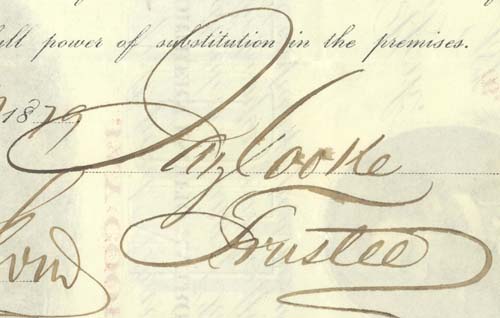 full power of substitution in the premises.
1879
Jay Cooke
Trustee